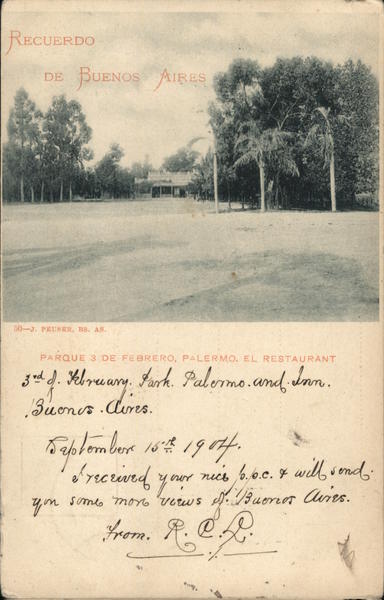 RECUERDO
DE BUENOS AIRES
50—J. PEUSER, BS. AS.
PARQUE 3 DE FEBRERO, PALERMO. EL RESTAURANT
3rd of February. Park. Palermo. and. Inn.
Buenos. Aires.
September 15th 1904.
I received your nice p.p.c. & will send.
you some more views of Buenos Aires.
From. R. C. L.